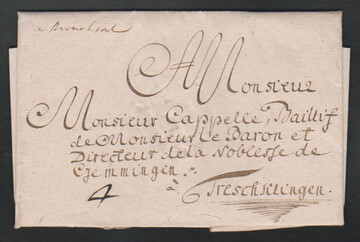 A Monsieur
Monsieur Cappelle, Baillif
de Monsieur le Baron et
Directeur de la Noblesse de
Gemmingen.
à Treschklingen.
4